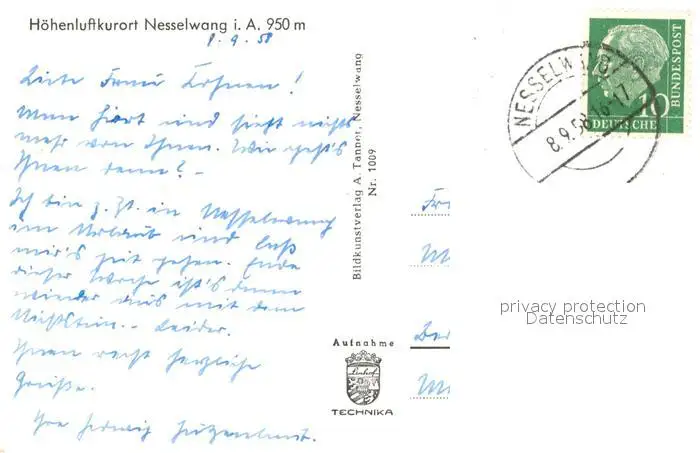 Höhenluftkurort Nesselwang i. A. 950 m
8.9.58
Liebe Frau !
Man hört und sieht nichts
mehr von Ihnen. Wie geht's
Ihnen denn? -
Ich bin z. Zt. in Nesselwang
im Urlaub und laß
mir's gut gehen. Ende
dieser Woche ist's dann
wieder aus mit dem
Nichtstun. - Leider.
Ihnen recht herzliche
Grüße.
Ihre
Bildkunstverlag A. Tanner, Nesselwang
Nr. 1009
Aufnahme
Linhof
TECHNIKA
NESSELWANG
8.9.58 16-17
10
DEUTSCHE
BUNDESPOST
privacy protection
Datenschutz